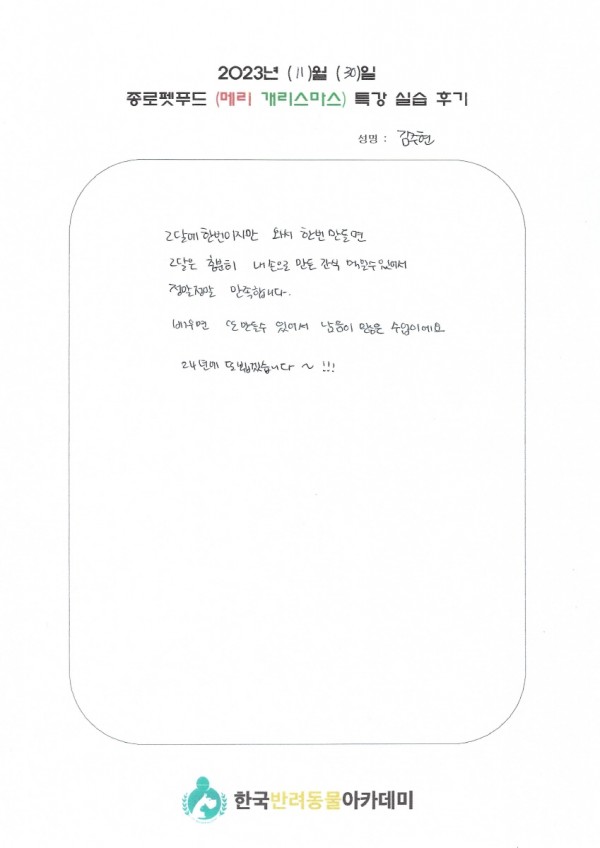 2023년 (11)월 (30)일
종로펫푸드 (메리 개리스마스) 특강 실습 후기
성명 : 김주현
2달에 한번이지만 와서 한번 만들면
2달은 충분히 내 손으로 만든 간식 먹일수있어서
정말정말 만족합니다.
배우면 또 만들수 있어서 남음이 많은 수업이에요
24년에 또 뵙겠습니다 ~ !!!
한국반려동물아카데미